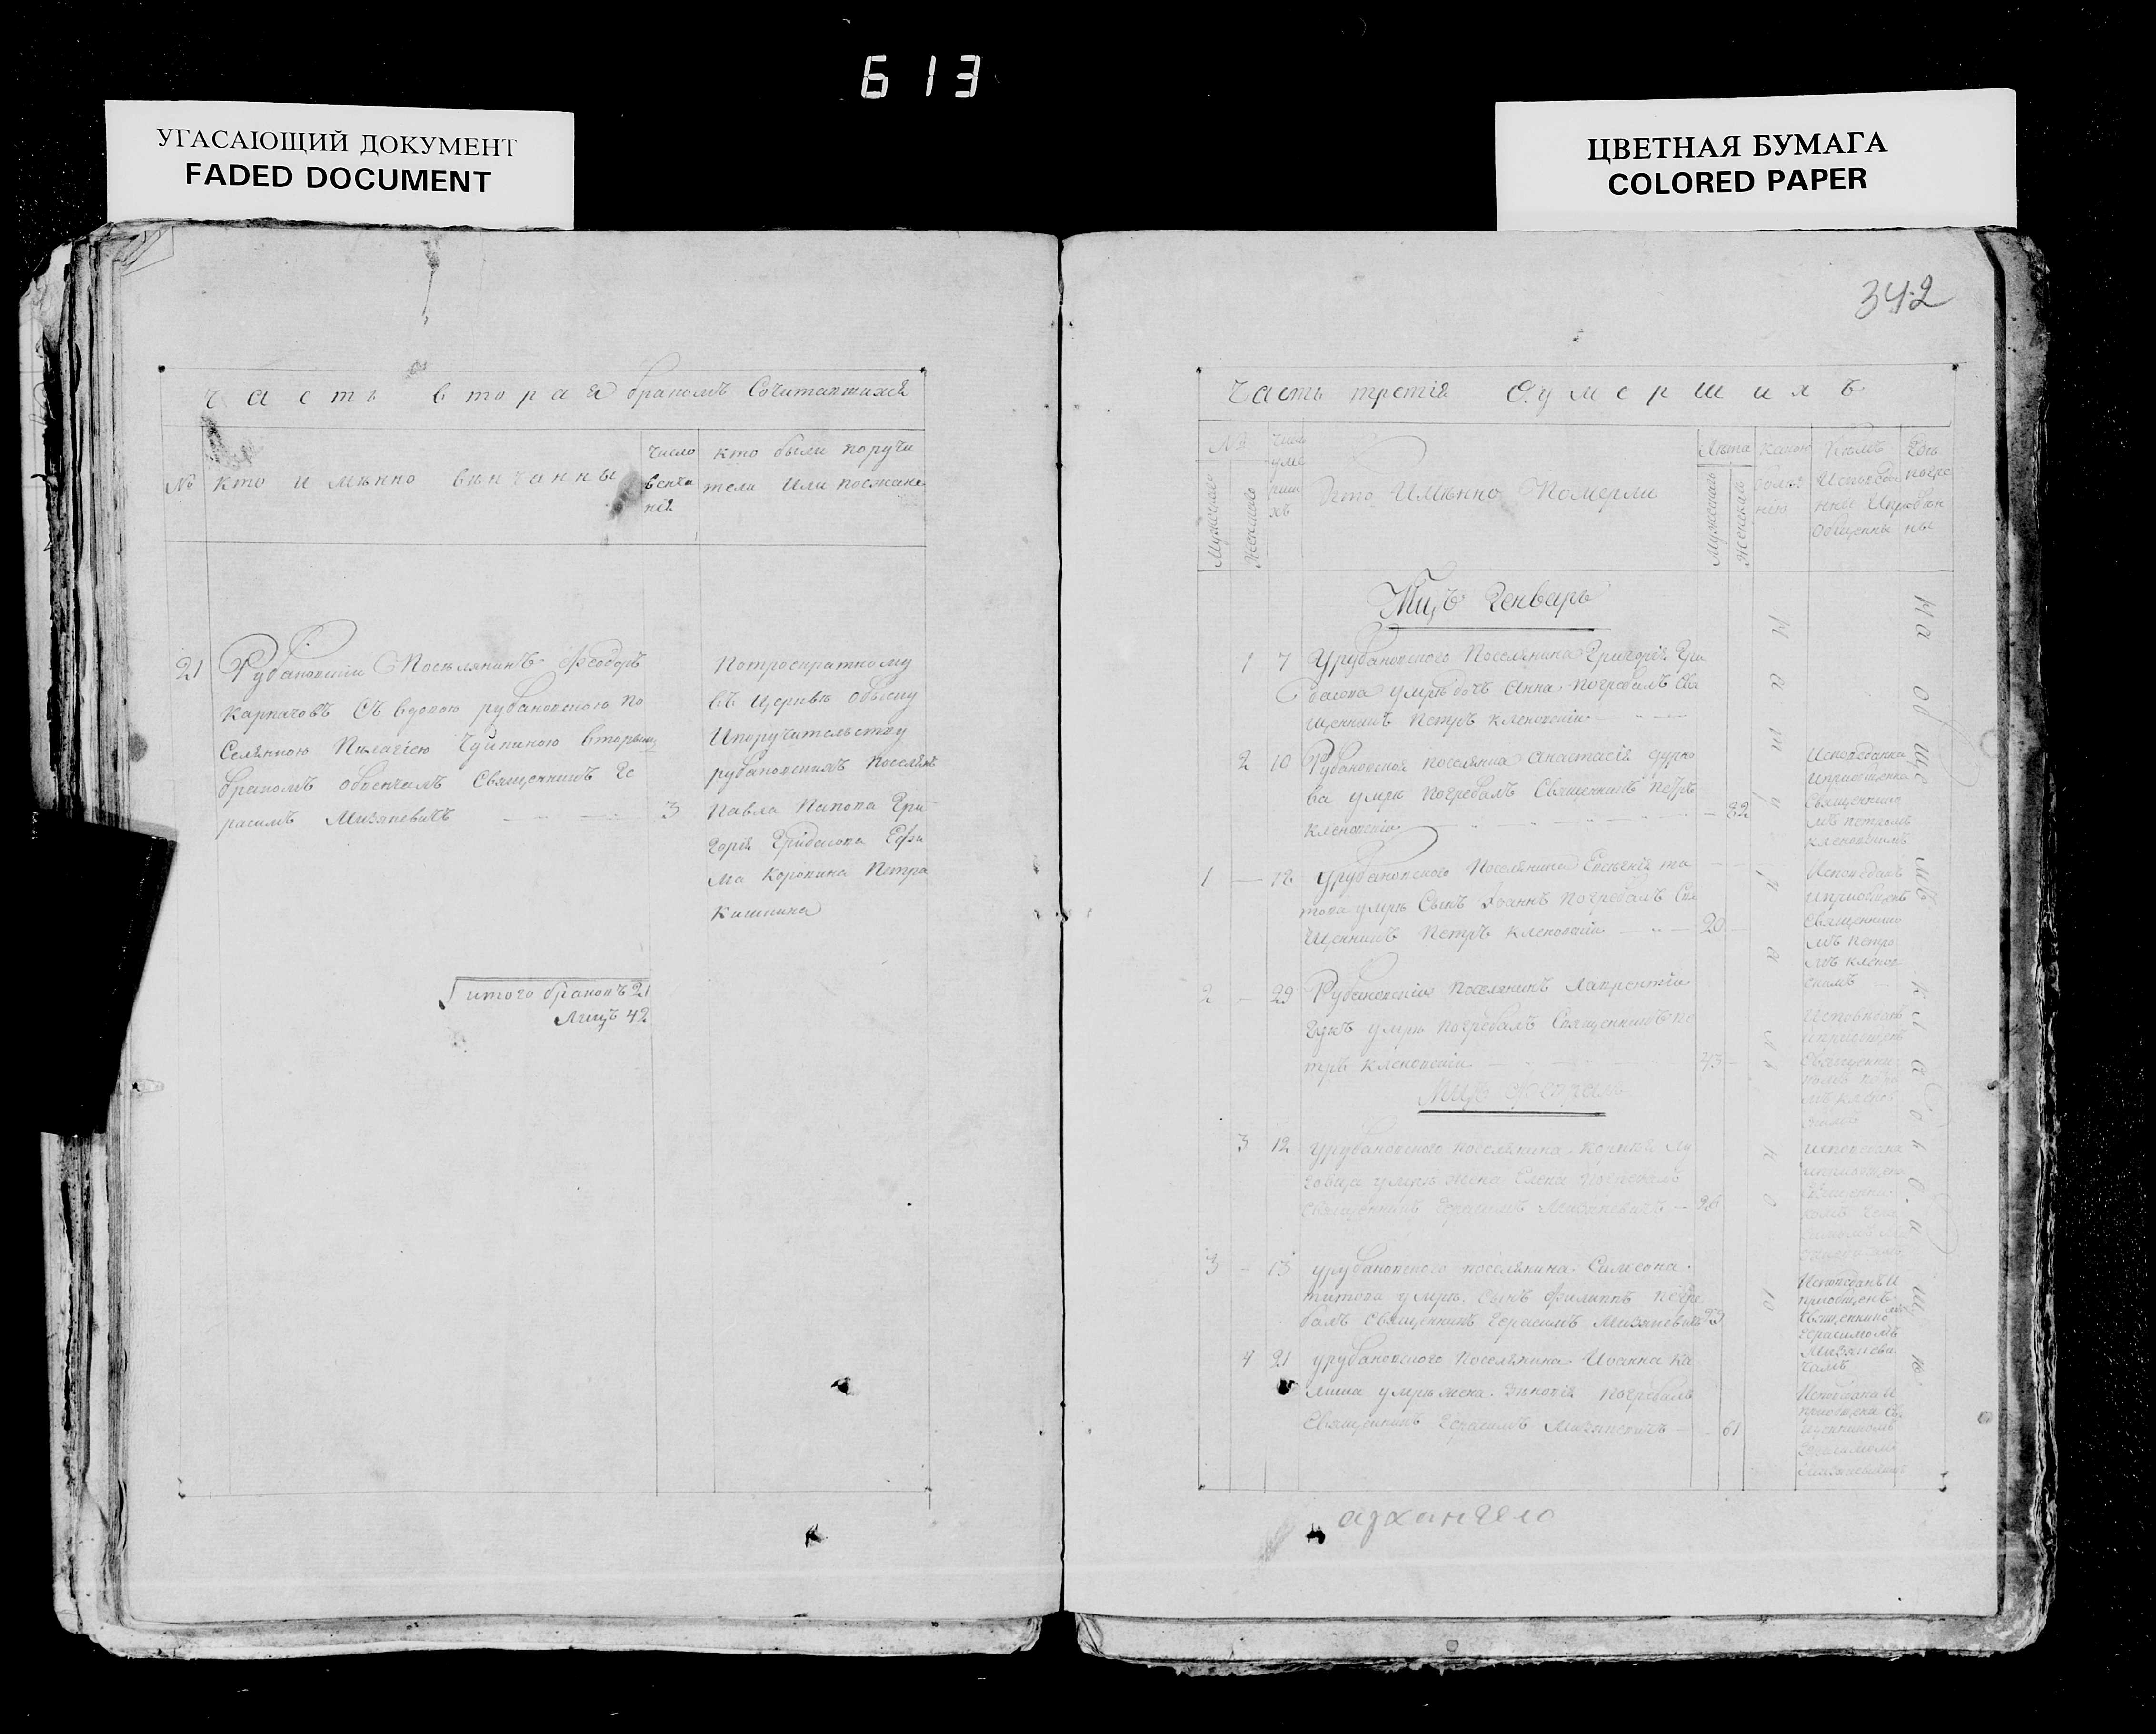 613
УГАСАЮЩИЙ ДОКУМЕНТ
FADED DOCUMENT
ЦВЕТНАЯ БУМАГА
COLORED PAPER
342
Часть вторая бракомъ Сочитавшихся
№
кто имѣнно вѣнчанны
Число
венча
нія
кто были поручи
тели или поежане
21
Рубановскіи Поселянинъ Феодоръ
Карпачовъ Съ вдовою рубановскою по
селянкою Пилагіею вторымъ
бракомъ обвенчалъ Священникъ Ге
расимъ Мизякевичъ
3
По троекратному
въ Церкве обыску
И поручительству
рубановскихъ поселянъ
Павла Папова Гри
горія Грибанова Ефи
ма Коропина Петра
Кишкина
итого браковъ 21
Лицъ 42
Часть третія О умершихъ
№
Мужескаго
Женскаго
Число
уме
рши
хъ
Кто Имѣнно Померли
Лѣта
Мужеска
Женска
Какою
болѣз
нею
Кѣмъ
Исповеда
нны И прі
общенны
Где
погре
бен
ны
Мцъ Генварь
1 7 У рубановского Поселянина Григорія Гри
банова умрѣ дочь Анна погребалъ Свя
щенникъ Петръ Кленовскіи
2 10 Рубановская поселянка Анастасія
ва умре погребалъ Священникъ Петръ
Кленовскіи 32
Исповеданна
и приобщенна
Священнико
мъ петромъ
кленовскимъ
1 12 У рубановского Поселянина Евсѣвія ти
това умре Сынъ Іоаннъ погребалъ Свя
щенникъ Петръ Кленовскіи 20
Исповеданъ
и приобщенъ
Священнико
мъ Петро
мъ кленов
скимъ
2 29 Рубановскіи Поселянинъ Лаврентіи
умре погребалъ Священникъ Пе
тръ Кленовскіи 43
Исповѣданъ
и приобщенъ
Священни
Мцъ Февраль
3 12 У рубановского поселянина Корнея
умре жена Елена погребалъ
Священникъ Герасимъ Мизякевичъ 26
Исповедана
и приобщена
3 13 У рубановского поселянина Симеона
титова умре сынъ Филиппъ погре
балъ Священникъ Герасимъ Мизякевичъ 23
Исповеданъ И
приобщенъ
Священнико
мъ
Герасимомъ
Мизякеви
чемъ
4 21 У рубановского поселянина Иоанна Ка
лиша умре жена Зѣновія погребалъ
Священникъ Герасимъ Мизякевичъ 61
Исповедана И
приобщена Свя
щенникомъ
Герасимомъ
Мизякевичемъ
Натурально
На общемъ кладбищѣ
архангело